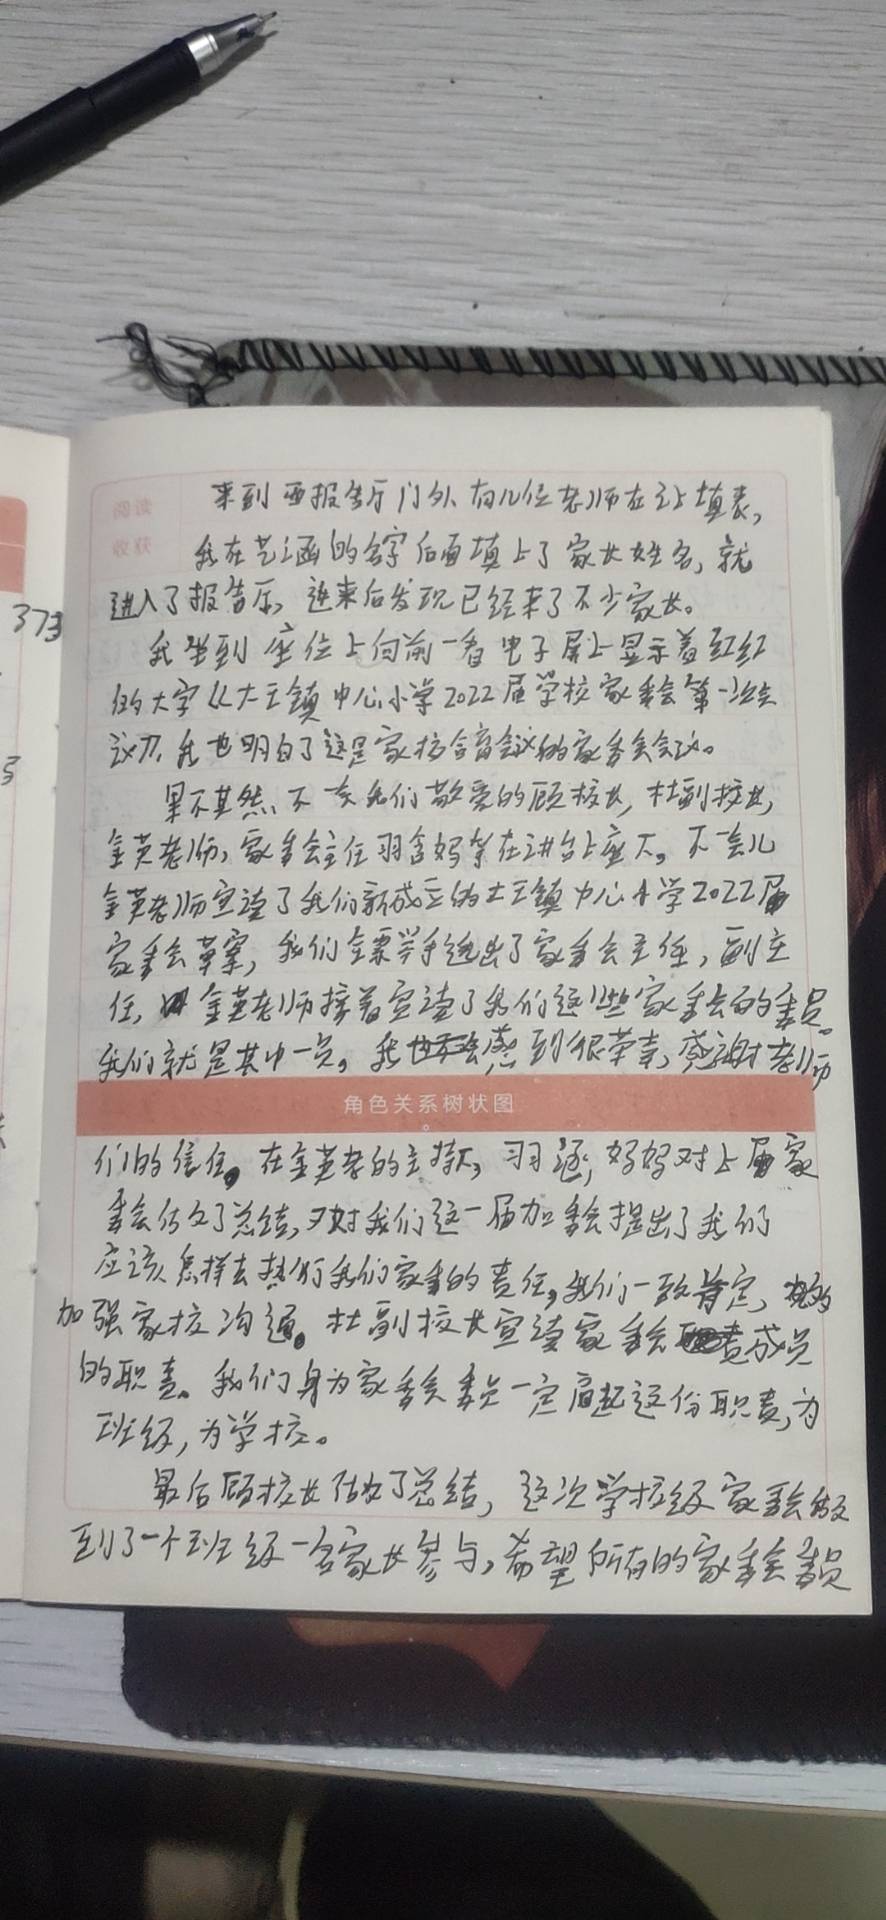 阅读
收获
来到西报告厅门外,有几位老师在让填表,
我在艺涵的名字后面填上了家长姓名,就
进入了报告厅,进来后发现已经来了不少家长。
373
我坐到座位上向前一看电子屏上显示着红红
的大字《大王镇中心小学2022届学校家委会第一次会
议》,我也明白了这是家校合育会议的家委会会议。
果不其然,不一会我们敬爱的顾校长,杜副校长,
金英老师,家委会主任羽含妈等在讲台上座下。不一会儿
金英老师宣读了我们新成立的大王镇中心小学2022届
家委会草案,我们全票举手选出了家委会主任,副主
任,金英老师接着宣读了我们这些家委会的委员。
我们就是其中一员。我感到很荣幸,感谢老师
角色关系树状图
们的信任。在金英老的主持下,羽涵,妈妈对上届家
委会作文了总结,又对我们这一届加委会提出了我们
应该怎样去执行我们家委的责任,我们一致肯定,
加强家校沟通。杜副校长宣读家委会成员
的职责。我们身为家委会委员一定肩起这份职责,为
班级,为学校。
最后顾校长做了总结,这次学校级家委会做
到了一个班级一名家长参与,希望所有的家委会委员